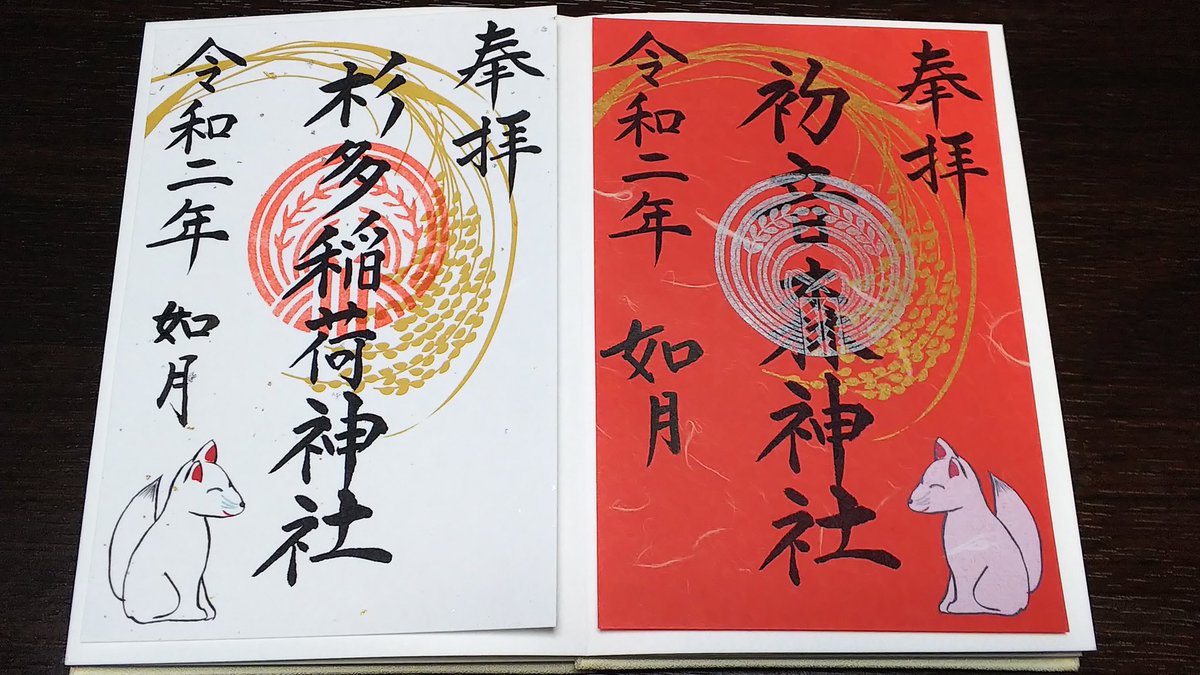 奉拝
初音森神社
令和二年 如月
奉拝
杉多稲荷神社
令和二年 如月